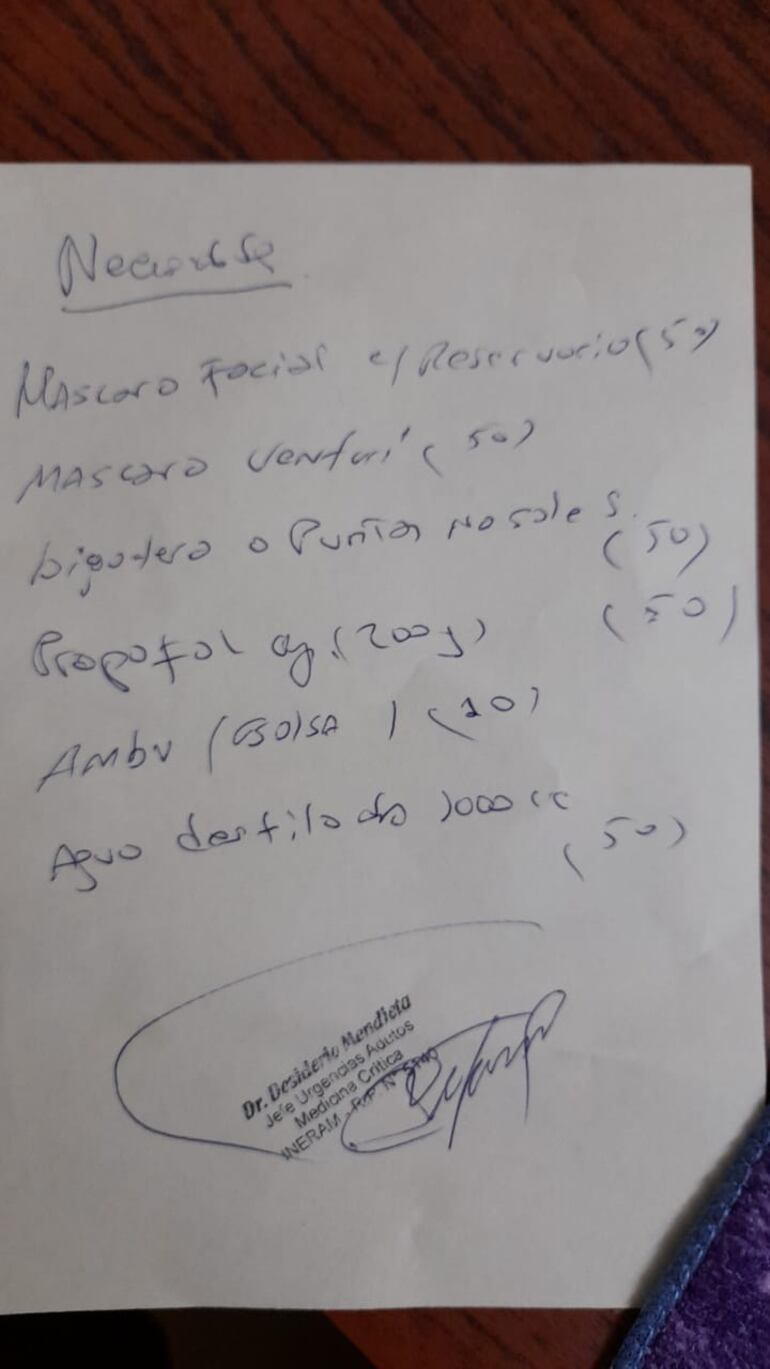 Necesita
Mascara Facial c/ Reservorio (50)
Mascara Venturi (50)
bigotera o Puntas nasales.
(50)
Propofol (200 (50)
Ambu (Bolsa) (10)
Agua destilada 1000 cc
(50)
Dr. Desiderio Mendieta
Jefe Urgencias Adultos
Medicina Crítica
INERAM - R.P. N°